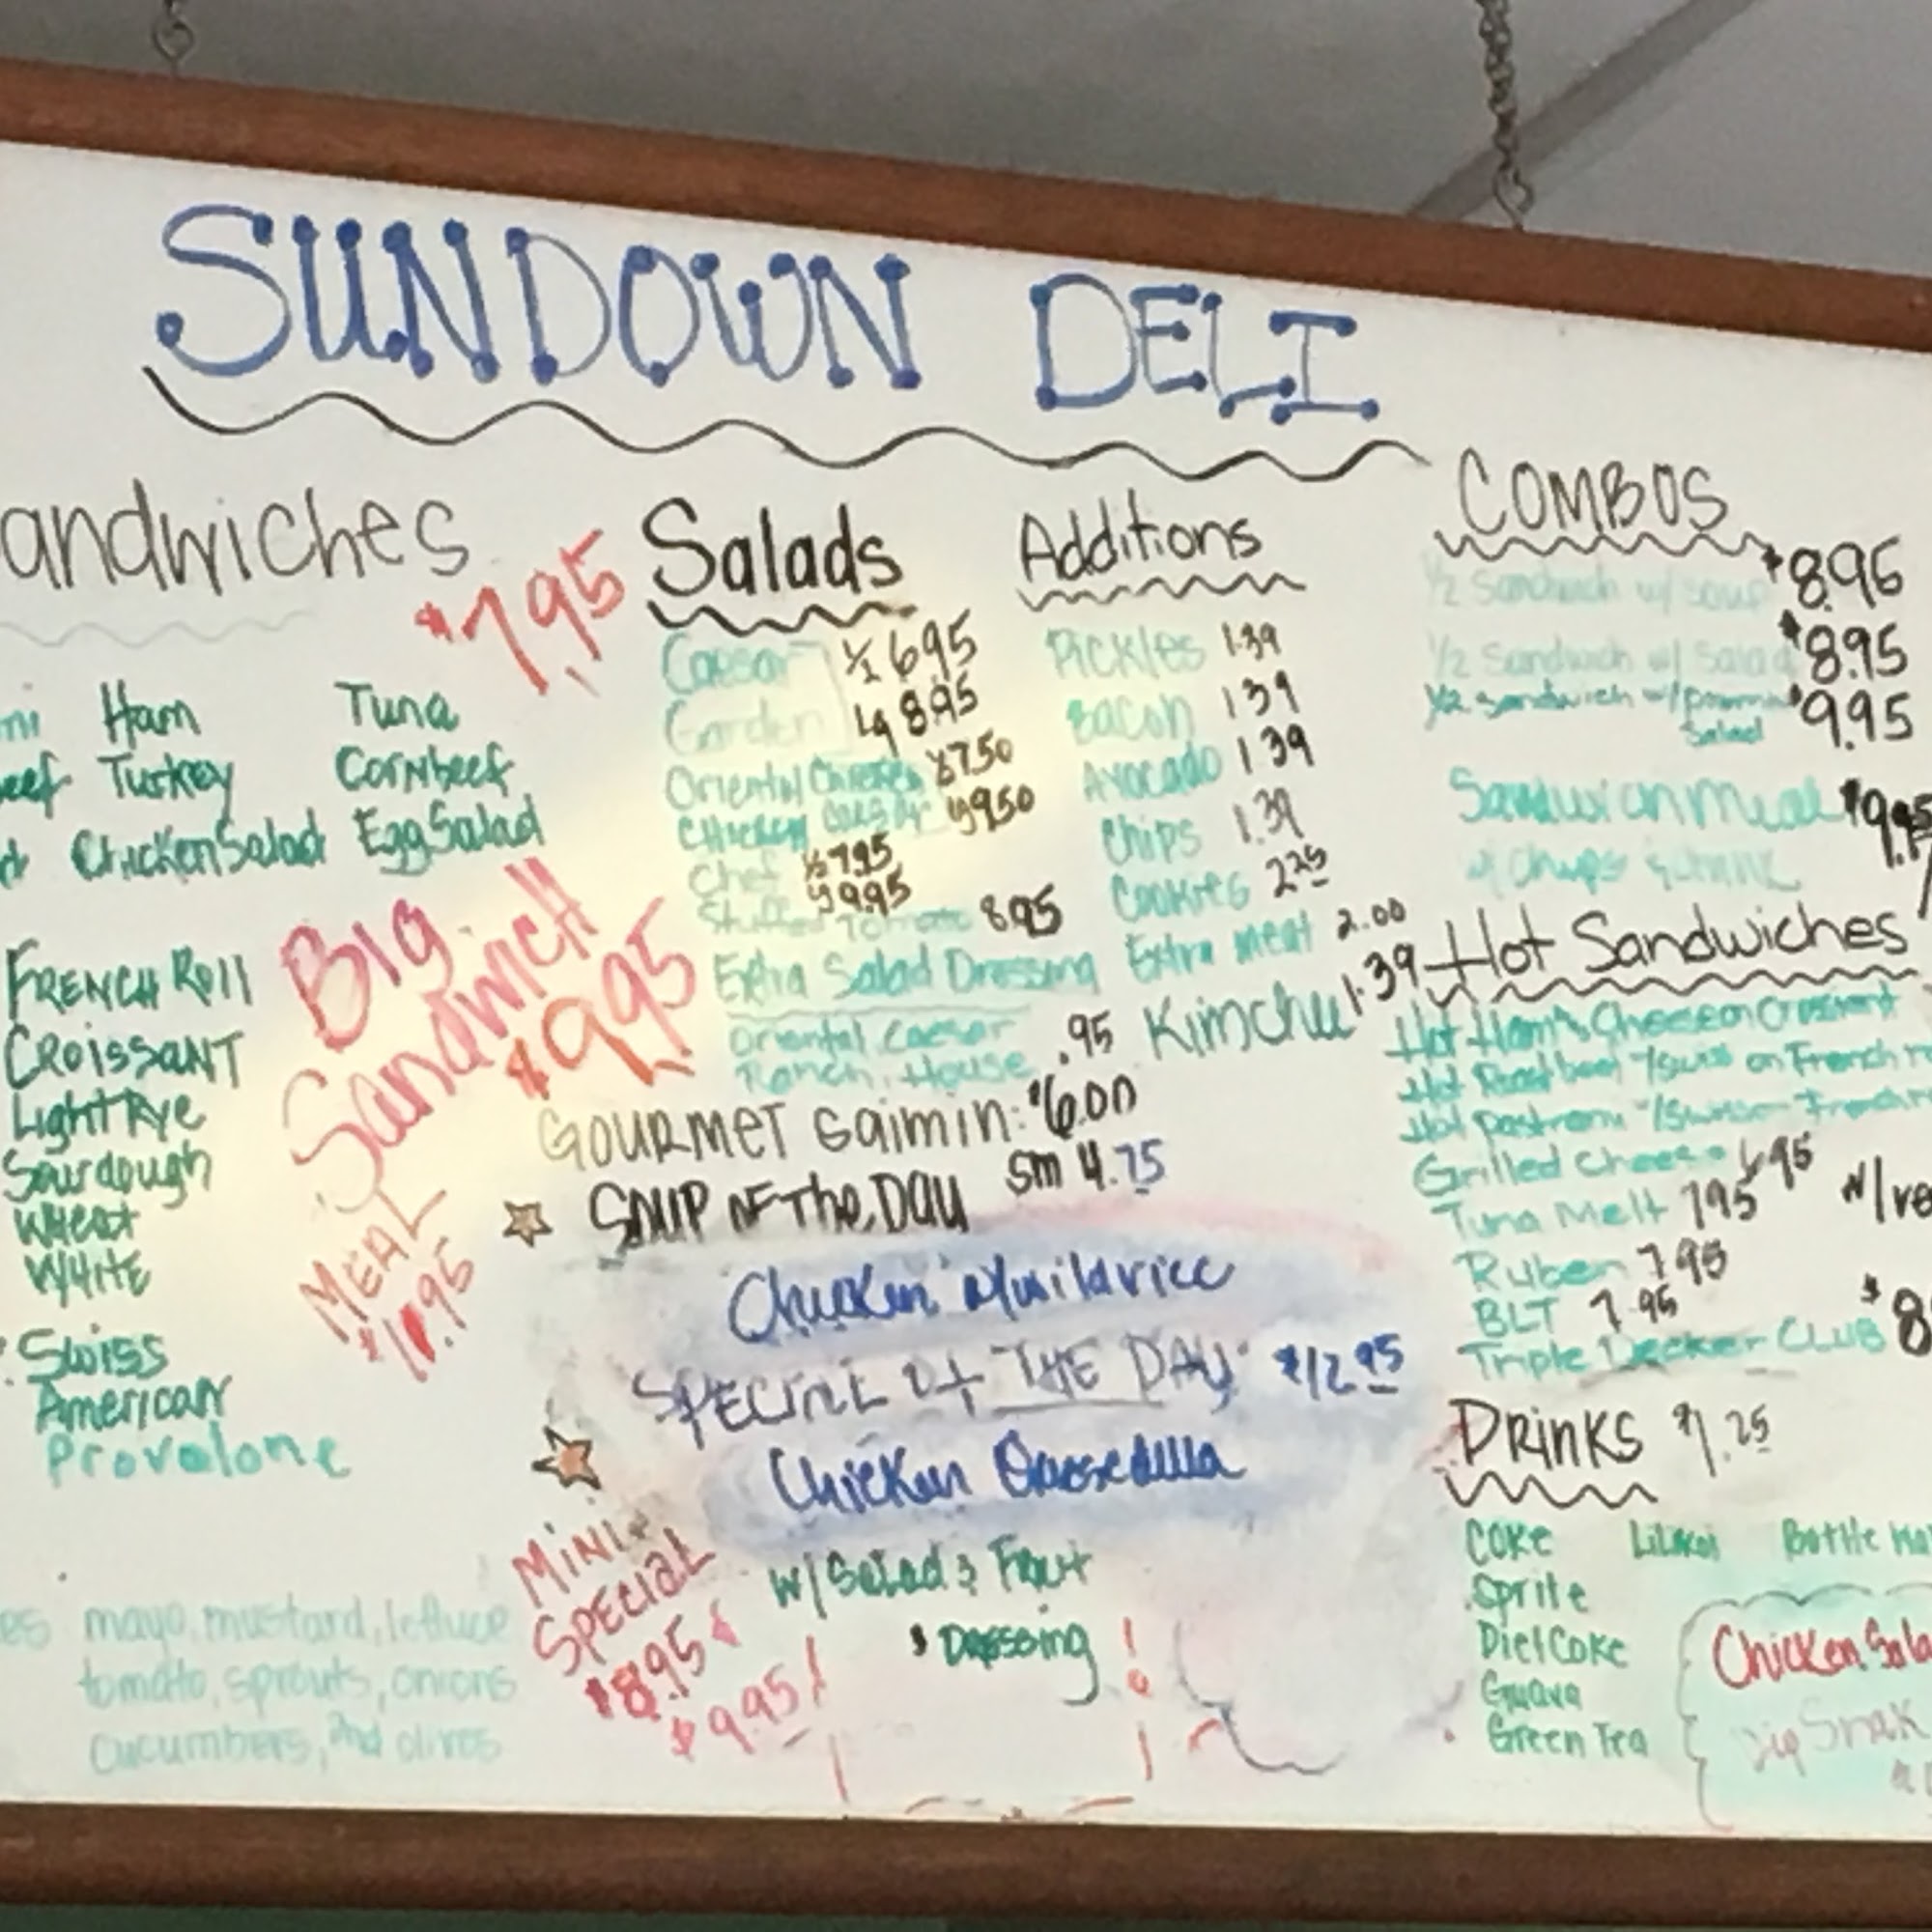 SUNDOWN DELI
andwiches
$7.95
Ham Tuna
Turkey CornBeef
ChickenSalad EggSalad
FRENCH ROll
CROISSANT
Light Rye
Sourdough
Wheat
White
Swiss
American
Provolone
mayo, mustard, lettuce
tomato, sprouts, onions
cucumbers, and olives
BIG
Sandwich
$9.95
MEAL
MINI
SPECIAL
$8.95
$9.95
Salads
Caesar ½ 6.95
Garden Lg 8.95
Oriental Chicken ½ 7.50
Chicken Caesar 9.50
Chef ½ 7.95
9.95
Stuffed Tomato 8.95
Extra Salad Dressing
Oriental, Caesar .95
Ranch, House
Additions
Pickles 1.39
Bacon 1.39
Avocado 1.39
Chips 1.39
Cookies 2.25
Extra meat 2.00
Kimchee 1.39
GOURMET Saimin: $6.00
SOUP OF The DAY sm 4.75
Chicken Wild rice
SPECIAL of THE DAY $12.95
Chicken Quesedilla
w/ Salad & Fruit
Dressing
COMBOS
½ Sandwich w/ soup $8.95
½ Sandwich w/ Salad $8.95
½ sandwich w/ $9.95
Salad
Meal
Hot Sandwiches
Hot Ham & Cheese on Croissant
Hot Roast beef w/swiss on French
Hot Pastrami w/swiss on French
Grilled Cheese 6.95
Tuna Melt 7.95
Ruben 7.95
BLT 7.95
Triple Decker CLUB
DRINKS $1.25
COKE Lilikoi Bottle
Sprite
Diet Coke
Guava
Green Tea
Chicken